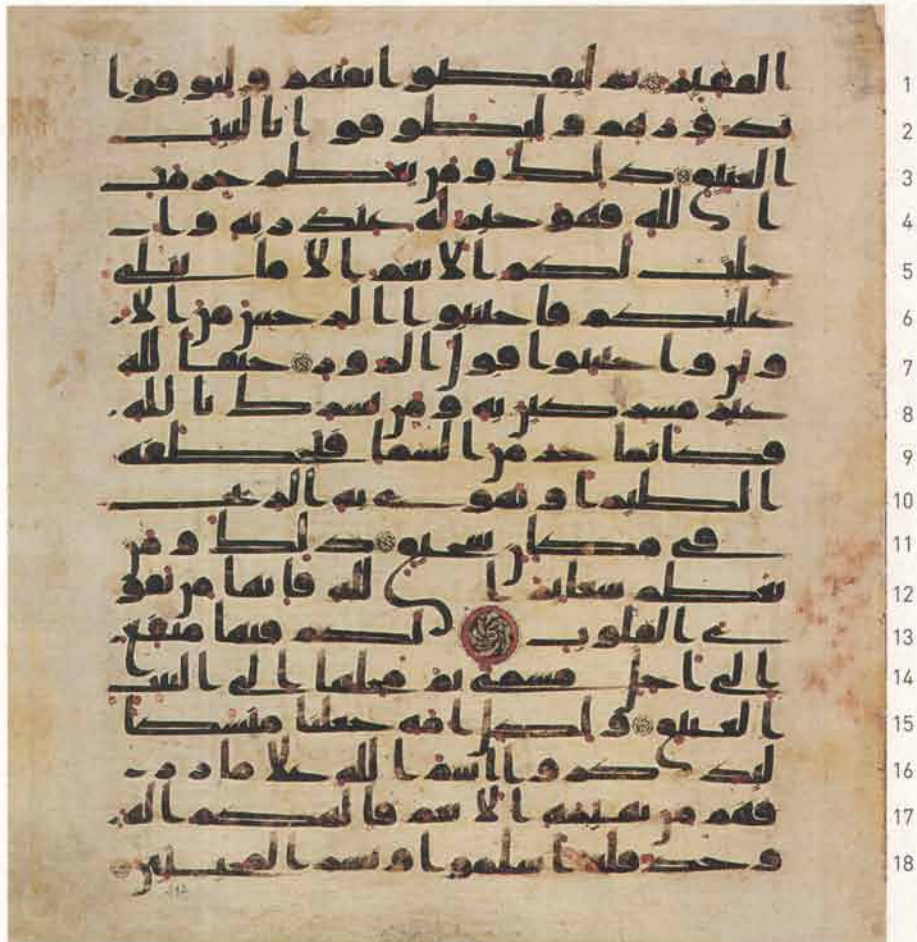 1 الفقير ثم ليقضوا تفثهم وليوفوا
2 نذورهم وليطوفوا بالبيت
3 العتيق ذلك ومن يعظم حرمت
4 الله فهو خير له عند ربه وا
5 حلت لكم الانعم الا ما يتلى
6 عليكم فاجتنبوا الرجس من الا
7 وثن واجتنبوا قول الزور حنفا لله
8 غير مشركين به ومن يشرك بالله
9 فكانما خر من السما فتخطفه
10 الطير او تهوي به الريح
11 في مكان سحيق ذلك ومن
12 يعظم شعئر الله فانها من تقو
13 ى القلوب لكم فيها منفع
14 الى اجل مسمى ثم محلها الى البيت
15 العتيق ولكل امه جعلنا منسكا
16 ليذكروا اسم الله على ما رز
17 قهم من بهيمه الانعم فالهكم اله
18 وحد فله اسلموا وبشر المخبتين